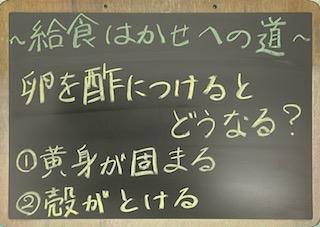 ～給食はかせへの道～
卵を酢につけると
どうなる？
①黄身が固まる
②殻がとける